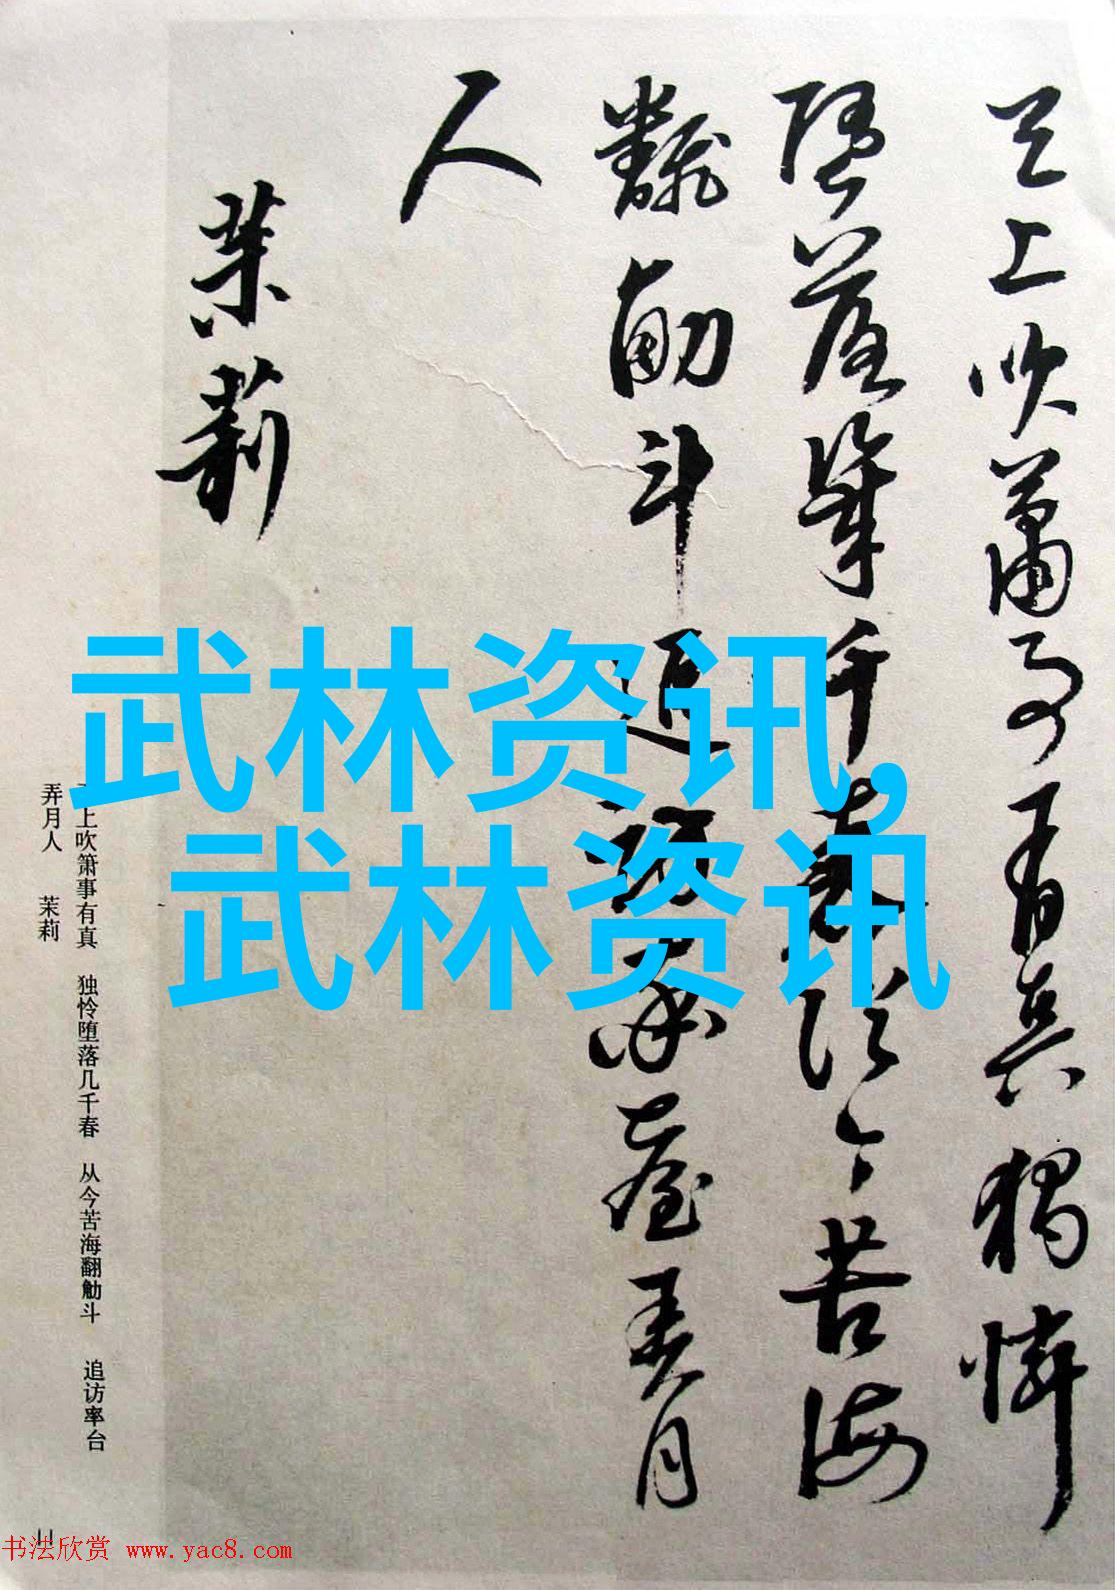 天上吹箫事有真独怜
堕落几千春从今苦海
翻觔斗追访率台弄月
人
茉莉
武林资讯,
武林资讯
上吹箫事有真 独怜堕落几千春 从今苦海翻觔斗 追访率台
弄月人 茉莉
11
书法欣赏 www.yac8.com